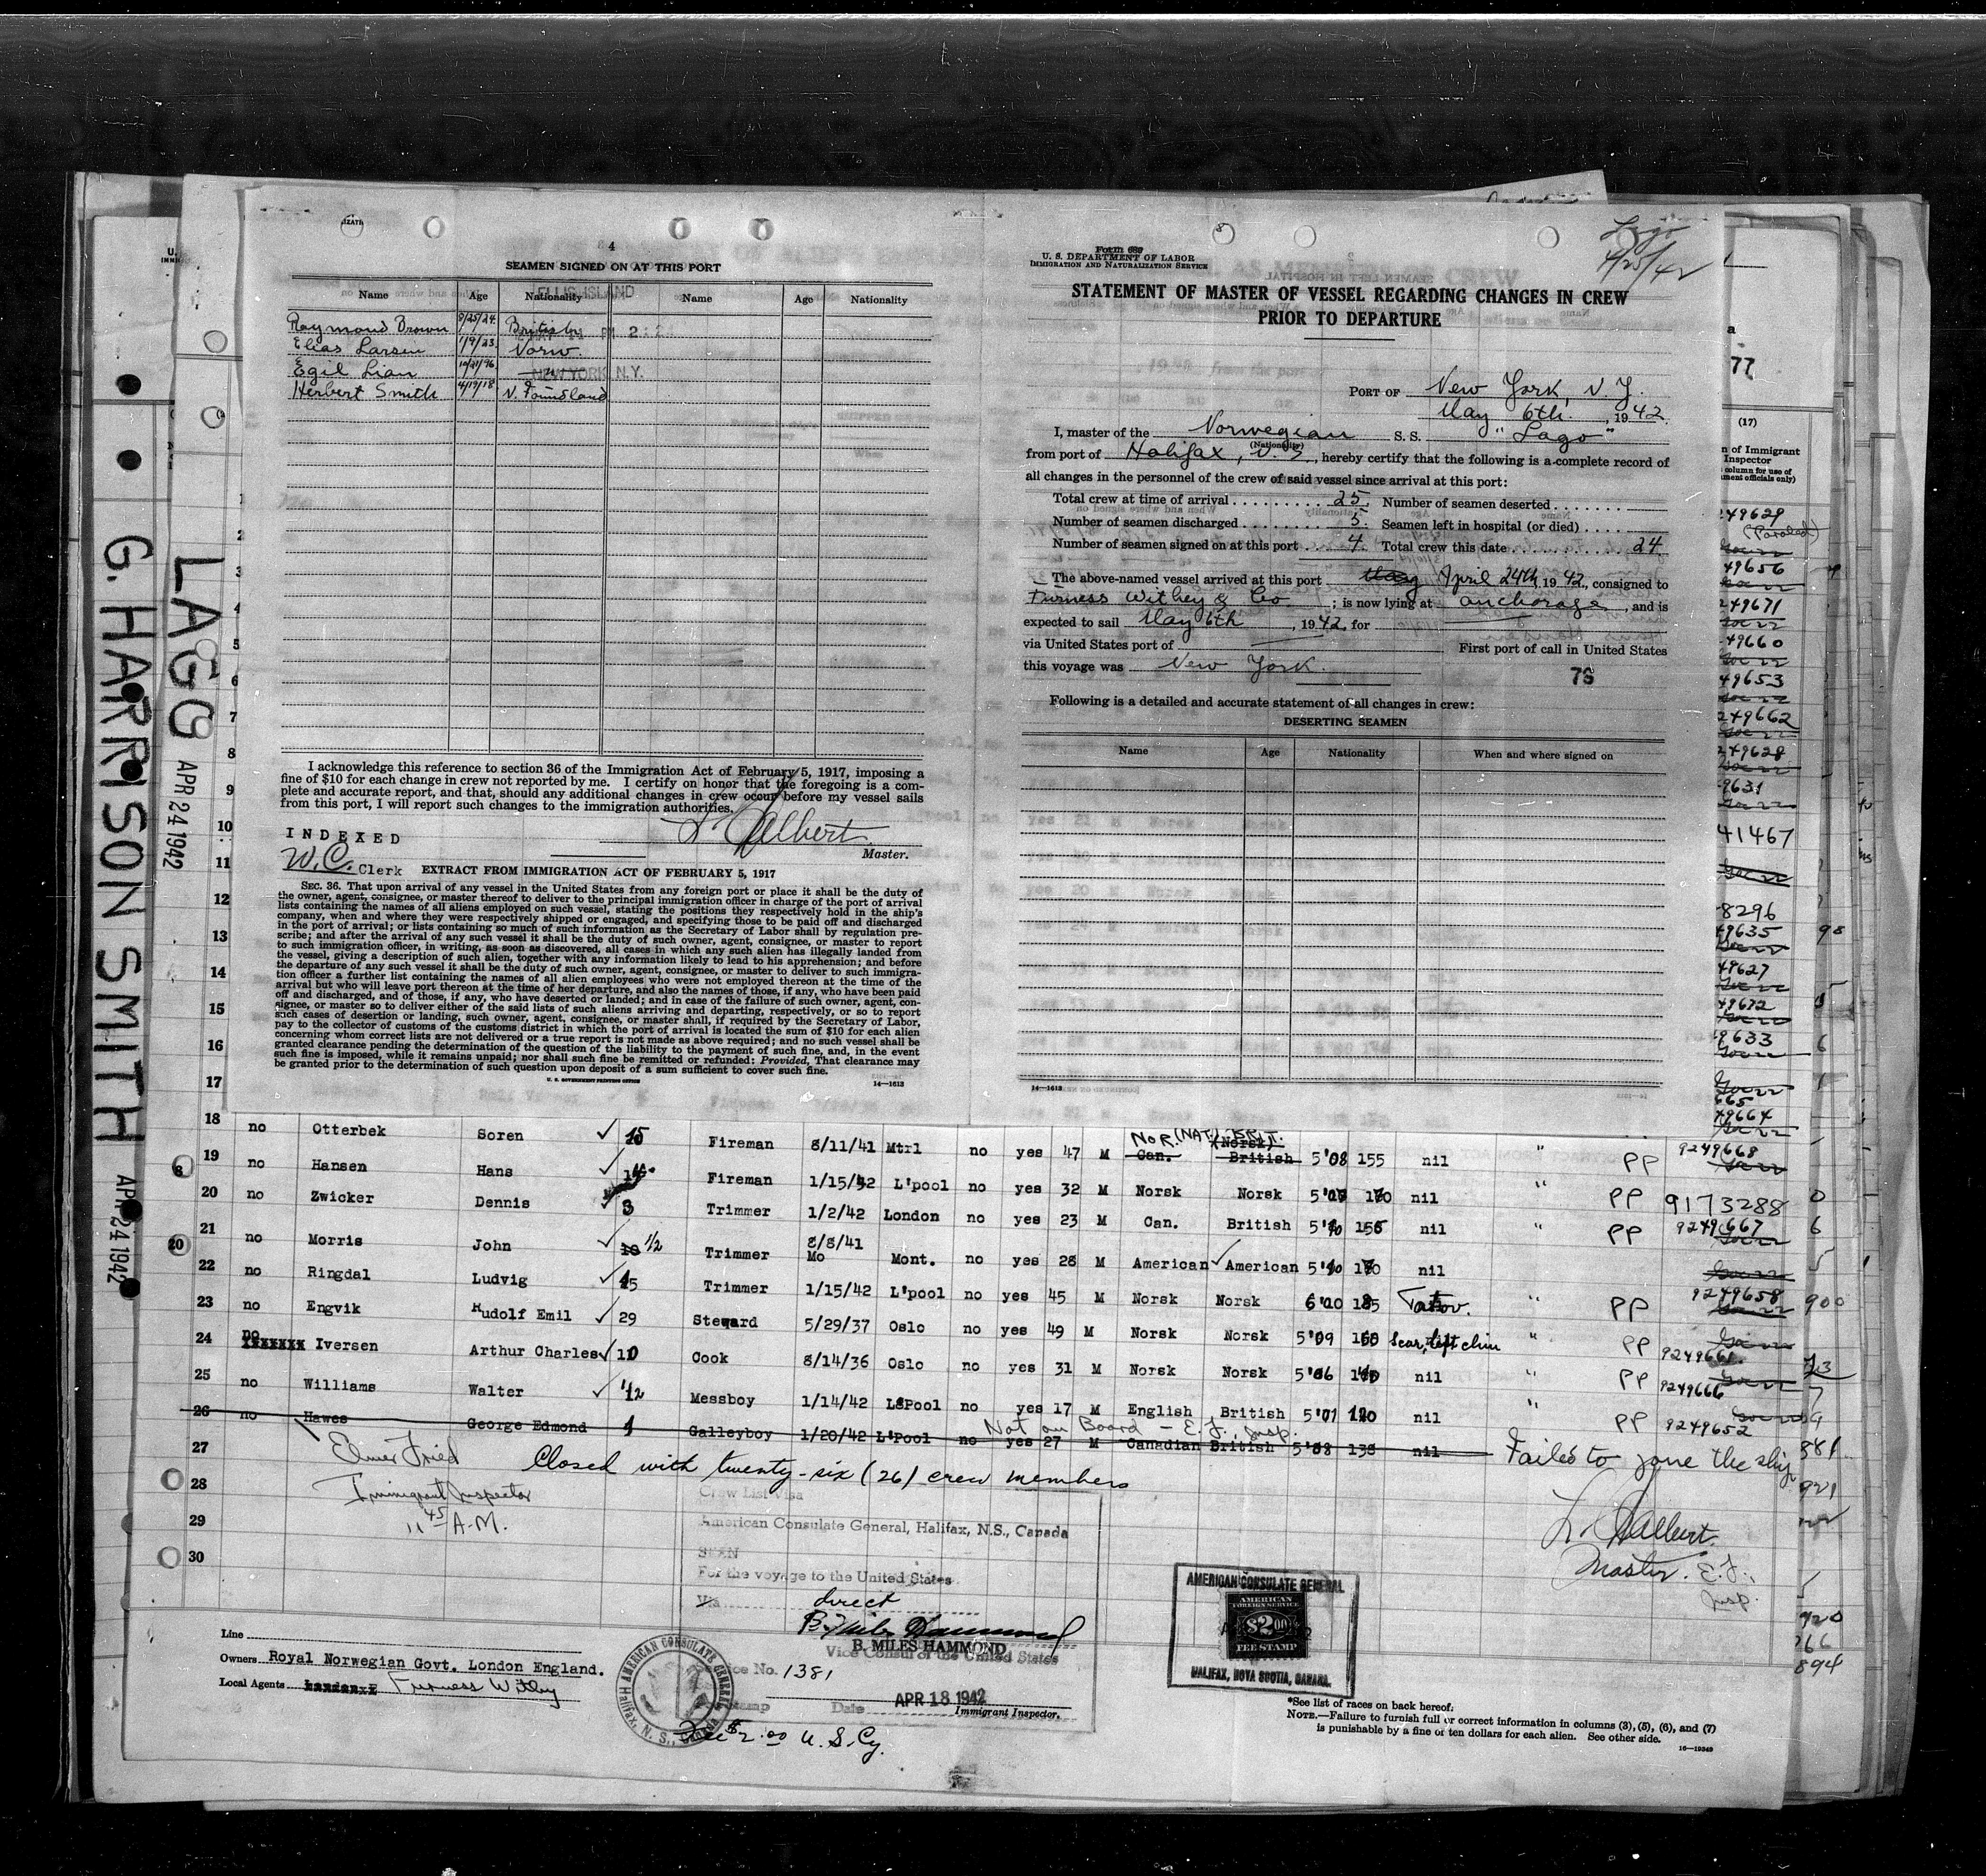 4
SEAMEN SIGNED ON AT THIS PORT
ELLIS ISLAND
Name Age Nationality Name Age Nationality
Raymond Brown 8/25/24 British
Elias Larsen 1/9/23 Norw.
Egil Lian 10/21/96 — " —
NEW YORK, N.Y.
Herbert Smith 4/19/18 N. Foundland
I acknowledge this reference to section 36 of the Immigration Act of February 5, 1917, imposing a
fine of $10 for each change in crew not reported by me. I certify on honor that the foregoing is a com-
plete and accurate report, and that, should any additional changes in crew occur before my vessel sails
from this port, I will report such changes to the immigration authorities.
Master.
INDEXED
W.C. Clerk
EXTRACT FROM IMMIGRATION ACT OF FEBRUARY 5, 1917
SEC. 36. That upon arrival of any vessel in the United States from any foreign port or place it shall be the duty of
the owner, agent, consignee, or master thereof to deliver to the principal immigration officer in charge of the port of arrival
lists containing the names of all aliens employed on such vessel, stating the positions they respectively hold in the ship's
company, when and where they were respectively shipped or engaged, and specifying those to be paid off and discharged
in the port of arrival; or lists containing so much of such information as the Secretary of Labor shall by regulation pre-
scribe; and after the arrival of any such vessel it shall be the duty of such owner, agent, consignee, or master to report
to such immigration officer, in writing, as soon as discovered, all cases in which any such alien has illegally landed from
the vessel, giving a description of such alien, together with any information likely to lead to his apprehension; and before
the departure of any such vessel it shall be the duty of such owner, agent, consignee, or master to deliver to such immigra-
tion officer a further list containing the names of all alien employees who were not employed thereon at the time of the
arrival but who will leave port thereon at the time of her departure, and also the names of those, if any, who have been paid
off and discharged, and of those, if any, who have deserted or landed; and in case of the failure of such owner, agent, con-
signee, or master so to deliver either of the said lists of such aliens arriving and departing, respectively, or so to report
such cases of desertion or landing, such owner, agent, consignee, or master shall, if required by the Secretary of Labor,
pay to the collector of customs of the customs district in which the port of arrival is located the sum of $10 for each alien
concerning whom correct lists are not delivered or a true report is not made as above required; and no such vessel shall be
granted clearance pending the determination of the question of the liability to the payment of such fine, and, in the event
such fine is imposed, while it remains unpaid; nor shall such fine be remitted or refunded: Provided, That clearance may
be granted prior to the determination of such question upon deposit of a sum sufficient to cover such fine.
U. S. GOVERNMENT PRINTING OFFICE 14—1613
Lago
4/25/42
Form 689
U. S. DEPARTMENT OF LABOR
IMMIGRATION AND NATURALIZATION SERVICE
STATEMENT OF MASTER OF VESSEL REGARDING CHANGES IN CREW
PRIOR TO DEPARTURE
PORT OF New York, N.Y.
May 6th, 1942
I, master of the Norwegian S. S. "Lago"
(Nationality)
from port of Halifax, N.S, hereby certify that the following is a complete record of
all changes in the personnel of the crew of said vessel since arrival at this port:
Total crew at time of arrival 25 Number of seamen deserted
Number of seamen discharged 5 Seamen left in hospital (or died)
Number of seamen signed on at this port 4 Total crew this date 24
The above-named vessel arrived at this port May April 24th, 1942, consigned to
Furness Withey & Co. ; is now lying at anchorage, and is
expected to sail May 6th, 1942, for
via United States port of First port of call in United States
this voyage was New York
76
Following is a detailed and accurate statement of all changes in crew:
DESERTING SEAMEN
Name Age Nationality When and where signed on
14—1613
G. HARRISON SMITH APR 24 1942
LAGO APR 24 1942
77
(17)
n of Immigrant
Inspector
column for use of
ment officials only)
249629
(Paroled)
49656
249671
49660
49653
249662
249628
9631
41467
8296
49635
49627
49672
49633
665
49664
1
2
3
4
5
6
7
8
9
10
11
12
13
14
15
16
17
18 no Otterbek Soren 15 Fireman 8/11/41 Mtrl no yes 47 M NOR. (NAT.) BRIT. Can. (Norsk) British 5'08 155 nil " PP 9249668
19 no Hansen Hans Fireman 1/15/42 L'pool no yes 32 M Norsk Norsk nil " PP 9173288
20 no Zwicker Dennis 3 Trimmer 1/2/42 London no yes 23 M Can. British nil " PP 9249667
21 no Morris John 1/2 Trimmer 8/8/41 Mo Mont. no yes 28 M American American nil
22 no Ringdal Ludvig Trimmer 1/15/42 L'pool no yes 45 M Norsk Norsk " PP 9249658
23 no Engvik Rudolf Emil 29 Steward 5/29/37 Oslo no yes 49 M Norsk Norsk 5'09 Scar, left chin " PP 9249661
24 no Iversen Arthur Charles Cook 8/14/36 Oslo no yes 31 M Norsk Norsk 5'06 nil " PP 9249666
25 no Williams Walter 1/2 Messboy 1/14/42 L'Pool no yes 17 M English British nil " PP 9249652
Not on Board — E.F., Insp.
26 no Hawes George Edmond 1 Galleyboy 1/20/42 L'Pool no yes 27 M Canadian British nil Failed to jone the ship
27 Elmer Fried Closed with twenty-six (26) crew members
28 Immigrant Inspector
29 11 45 A.M.
30
Master. E.F., Insp.
Crew List Visa
American Consulate General, Halifax, N.S., Canada
SEEN
For the voyage to the United States
Via direct
B. Miles Hammond
B. MILES HAMMOND
Vice Consul of the United States
Service No. 1381
Date APR 18 1942
Immigrant Inspector.
Fee $2.00 U.S.Cy.
AMERICAN CONSULATE GENERAL
AMERICAN
FOREIGN SERVICE
$2.00
FEE STAMP
HALIFAX, NOVA SCOTIA, CANADA.
Line
Owners Royal Norwegian Govt. London England.
Local Agents Furness Withy
*See list of races on back hereof.
NOTE.—Failure to furnish full or correct information in columns (3), (5), (6), and (7)
is punishable by a fine of ten dollars for each alien. See other side.
16—19349